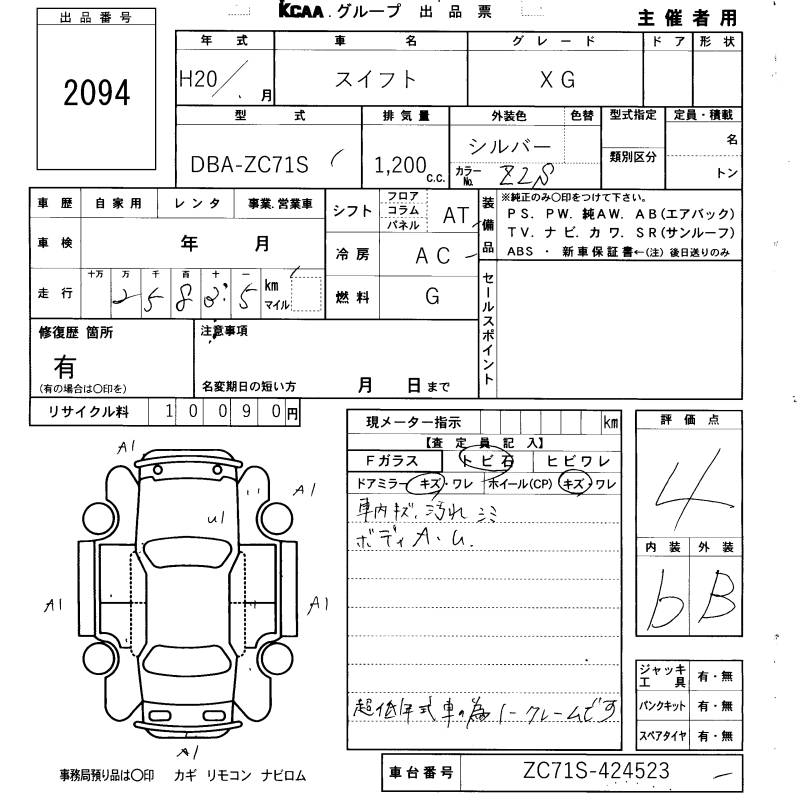 KCAA.グループ 出品票
主催者用
出品番号
2094
年式 車名 グレード ドア 形状
H20/ 月 スイフト XG
型式 排気量 外装色 色替 型式指定 定員・積載
DBA-ZC71S 1,200 c.c. シルバー 類別区分 名
カラーNo. Z2S トン
車歴 自家用 レンタ 事業.営業車
車検 年 月
走行 十万 万 千 百 十 一
2 5 8 3 5 km マイル
シフト フロア コラム パネル AT
冷房 AC
燃料 G
装備品
※純正のみ〇印をつけて下さい。
PS. PW. 純AW. AB(エアバック)
TV. ナビ. カワ. SR(サンルーフ)
ABS ・ 新車保証書←(注) 後日送りのみ
セールスポイント
修復歴 箇所
有
(有の場合は〇印を)
注意事項
名変期日の短い方 月 日まで
リサイクル料 1 0 0 9 0 円
現メーター指示 km
【査定員記入】
Fガラス トビ石 ヒビワレ
ドアミラー キズ・ワレ ホイール(CP) キズ・ワレ
車内キズ、汚れ ミミ
ボディA.U.
超低年式車の為ノークレームです
評価点
4
内装 外装
b B
ジャッキ工具 有・無
パンクキット 有・無
スペアタイヤ 有・無
A1
A1
U1
A1
A1
A1
事務局預り品は〇印 カギ リモコン ナビロム
車台番号 ZC71S-424523